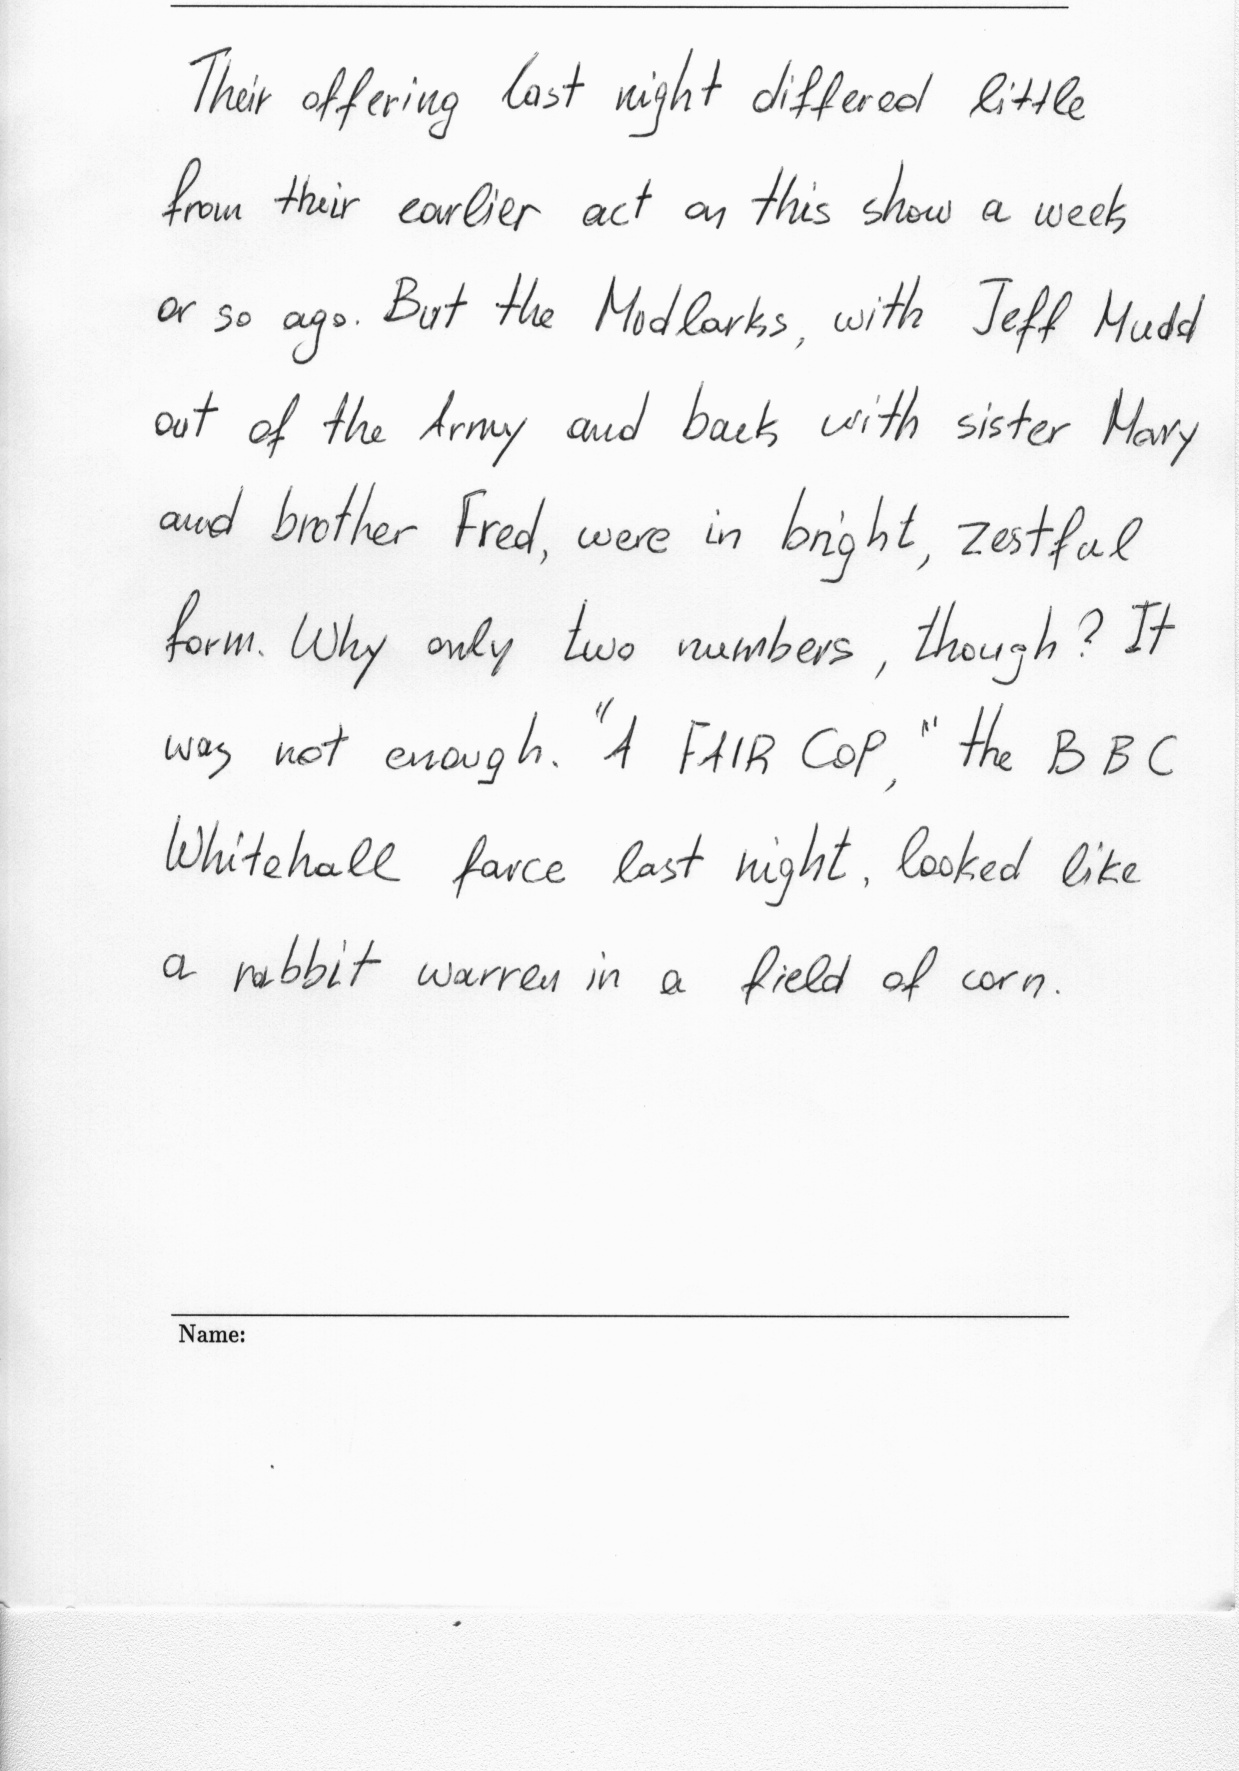 Their offering last night differed little
from their earlier act on this show a week
or so ago. But the Modlarks, with Jeff Mudd
out of the Army and back with sister Mary
and brother Fred, were in bright, zestful
form. Why only two numbers, though? It
was not enough. "A FAIR COP," the BBC
Whitehall farce last night, looked like
a rabbit warren in a field of corn.
Name: